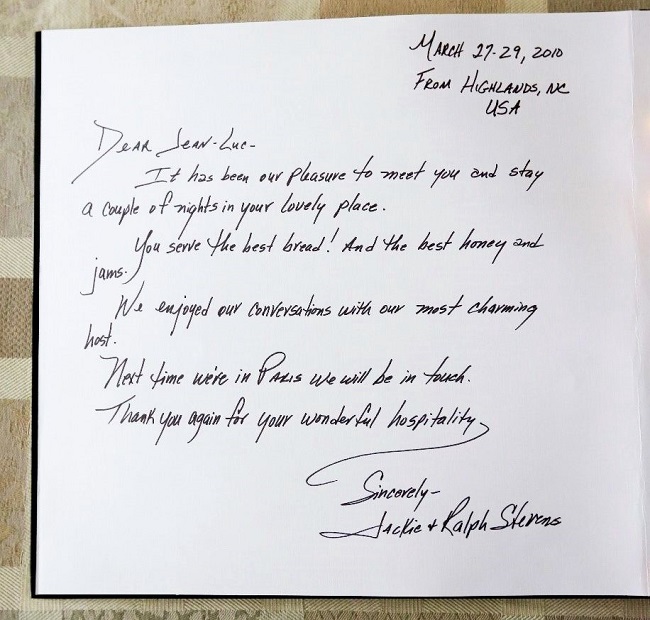 MARCH 27-29, 2010
FROM HIGHLANDS, NC
USA
DEAR JEAN-LUC-
It has been our pleasure to meet you and stay
a couple of nights in your lovely place.
You serve the best bread! And the best honey and
jams.
We enjoyed our conversations with our most charming
host.
Next time we're in PARIS we will be in touch.
Thank you again for your wonderful hospitality
Sincerely-
Jackie + Ralph Stevens